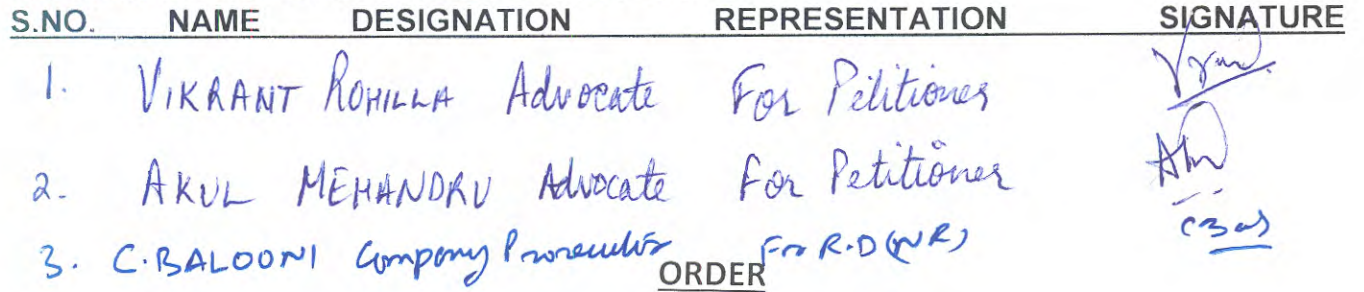 S.NO. NAME DESIGNATION REPRESENTATION SIGNATURE
1. VIKRANT ROHILLA Advocate For Petitioner
2. AKUL MEHANDRU Advocate For Petitioner
3. C.BALOONI Company Prosecutor For R.D (NR)
ORDER